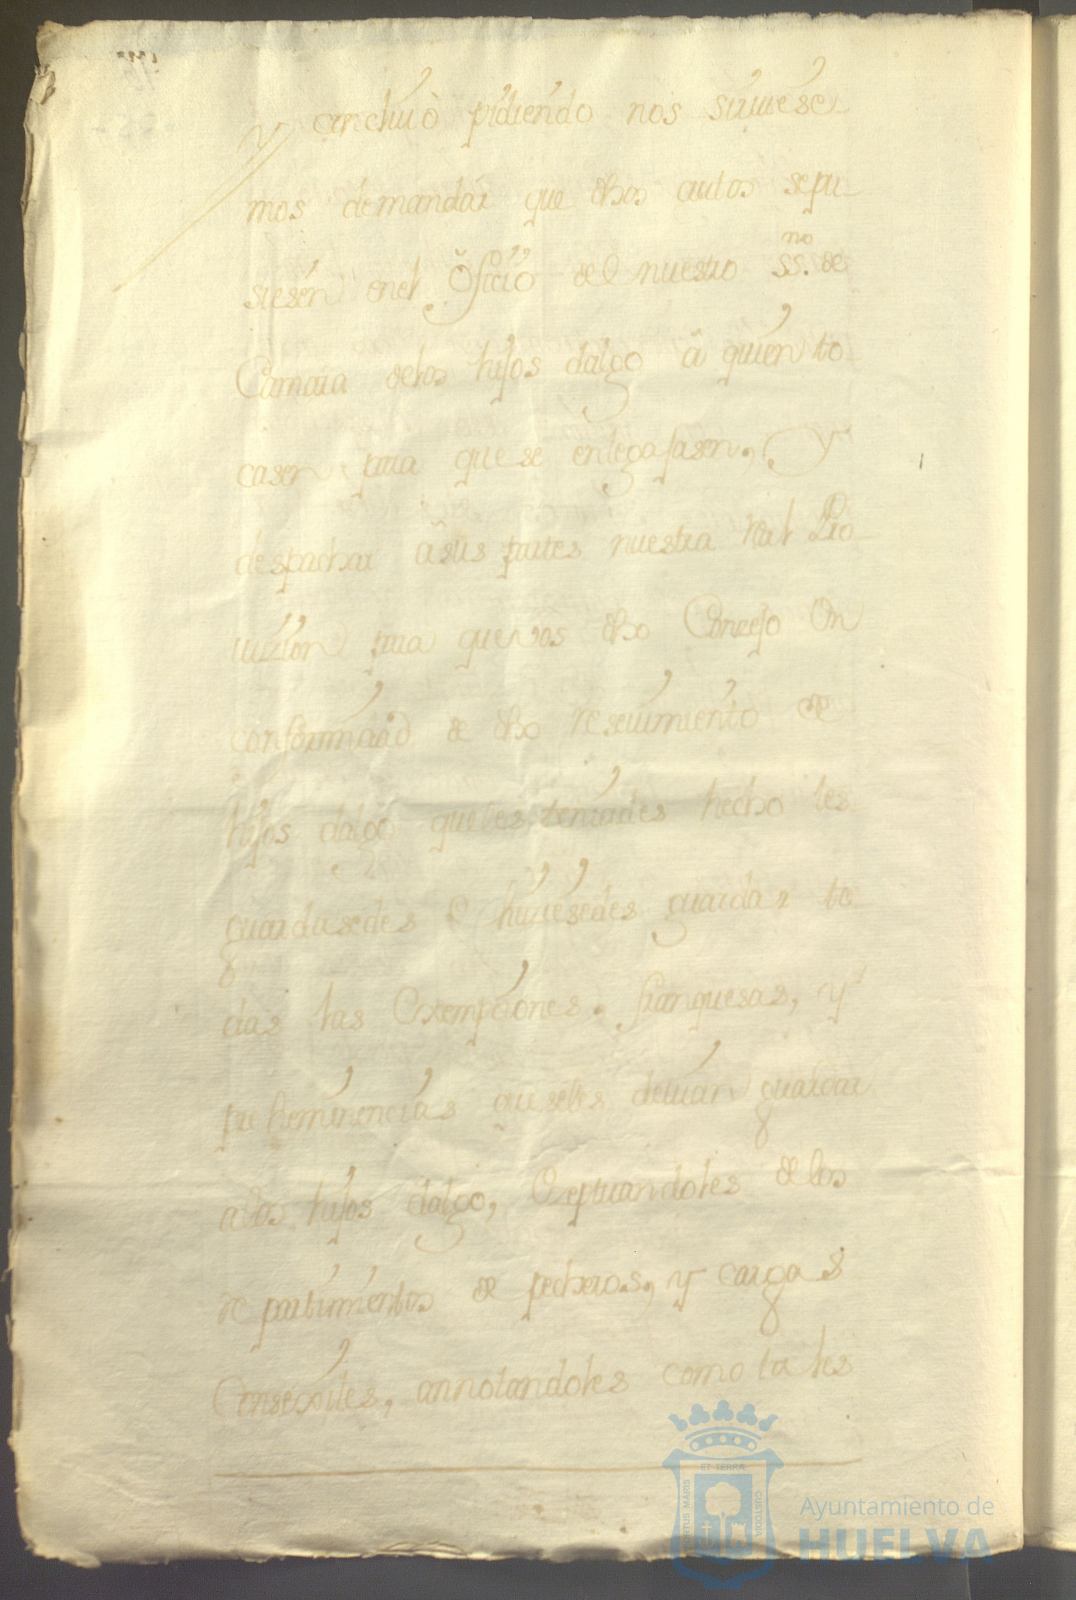 y archiuò pidiendo nos siruiese
mos demandar que dhos autos sepu
siesen enel Oficio del nuestro SS.no de
Camara delos hijos dalgo â quien to
casen para que se entegasasen, y
despachar âsus partes nuestra Real Pro
uizion para quevos dho Concejo En
conformidad de dho reseuimiento de
hijos dalgo queles teniades hecho les
guardasedes e hiziesedes guardar to
das las Exempciones, franquesas, y
preheminencias queseles deuian guardar
alos hijos dalgo, Exeptuandoles delos
repartimientos de pecheros, y cargas
Consexiles, annotandoles como tales
PORTUS MARIS ET TERRAE CUSTODIA
Ayuntamiento de
HUELVA